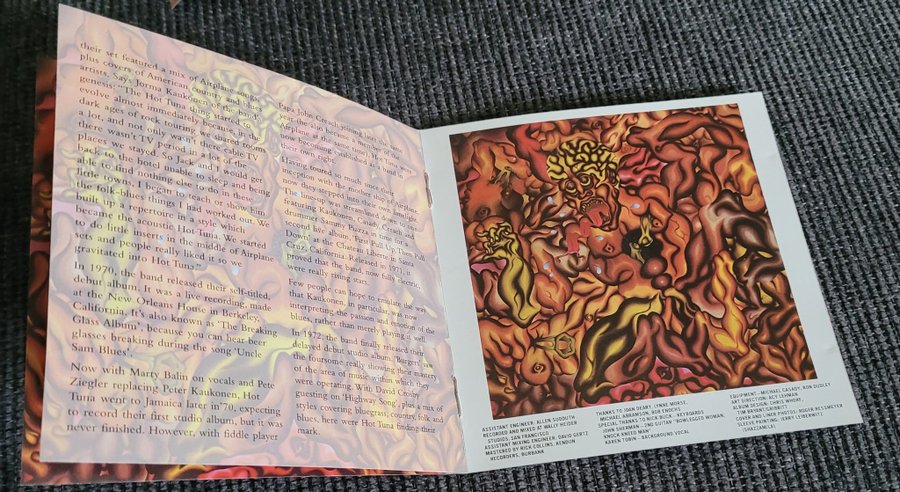 their set featured a mix of Airplane songs
plus covers of American country and blues
artists. Says Jorma Kaukonen of the band's
genesis: "The Hot Tuna thing started to
evolve almost immediately because in the
dark ages of rock touring we shared rooms
a lot, and not only wasn't there cable TV
there wasn't TV period in a lot of the
places we stayed. So Jack and I would get
back to the hotel unable to sleep and being
able to find nothing else to do in these
little towns, I began to teach or show him
the folk-blues things I had worked out. We
built up a repertoire in a style which
became the acoustic Hot Tuna. We started
to do little inserts in the middle of Airplane
sets and people really liked it so we
gravitated into Hot Tuna."
In 1970, the band released their self-titled,
debut album. It was a live recording, made
at the New Orleans House in Berkeley,
California. It's also known as 'The Breaking
Glass Album', because you can hear beer
glasses breaking during the song 'Uncle
Sam Blues'.
Now with Marty Balin on vocals and Pete
Ziegler replacing Peter Kaukonen, Hot
Tuna went to Jamaica later in '70, expecting
to record their first studio album, but it was
never finished. However, with fiddle player
Papa John Creach joining later the same
year (he also became a member of the
Airplane at the same time), Hot Tuna were
now becoming established as a band in
their own right.
Having toured so much since their
inception with the mother ship of Airplane
now deep-seeped into their own lifestyles
The line-up was streamlined down to one
featuring Kaukonen, Casady, Creach and
drummer Sammy Piazza, in time for a
second live album, 'First Pull Up, Then Pull
Down' at the Chateau Liberte in Santa
Cruz, California. Released in 1971, it
proved that the band, now fully electric,
were really rising stars.
Few people can hope to emulate the way
that Kaukonen, in particular, was now
interpreting the passion and emotion of the
blues, rather than merely playing it well.
In 1972, the band finally released their
delayed debut studio album, 'Burgers' saw
the foursome really showing their mastery
of the area of music within which they
were operating. With David Crosby
guesting on 'Highway Song', plus a mix of
styles covering bluegrass, country, folk and
blues, here were Hot Tuna finding their
mark.
ASSISTANT ENGINEER: ALLEN SUDDUTH
RECORDED AND MIXED AT WALLY HEIDER
STUDIOS, SAN FRANCISCO
ASSISTANT MIXING ENGINEER: DAVID GERTZ
MASTERED BY RICK COLLINS, KENDUN
RECORDERS, BURBANK
THANKS TO JOHN DEARY, LYNNE MORSE,
MICHAEL ABRAMSON, BOB ENOCHS
SPECIAL THANKS TO NICK BUCK - KEYBOARDS
JOHN SHERMAN - 2ND GUITAR "BOWLEGGED WOMAN,
KNOCK KNEED MAN"
KAREN TOBIN - BACKGROUND VOCAL
EQUIPMENT - MICHAEL CASADY, RON DUDLEY
ART DIRECTION: ACY LEHMAN
ALBUM DESIGN: CHRIS WHORF,
TIM BRYANT/GRIBBITT
COVER AND LINER PHOTOS: ROGER RESSMEYER
SLEEVE PAINTING: JERRY LYDERWITZ
(SHAZZAM/LA)